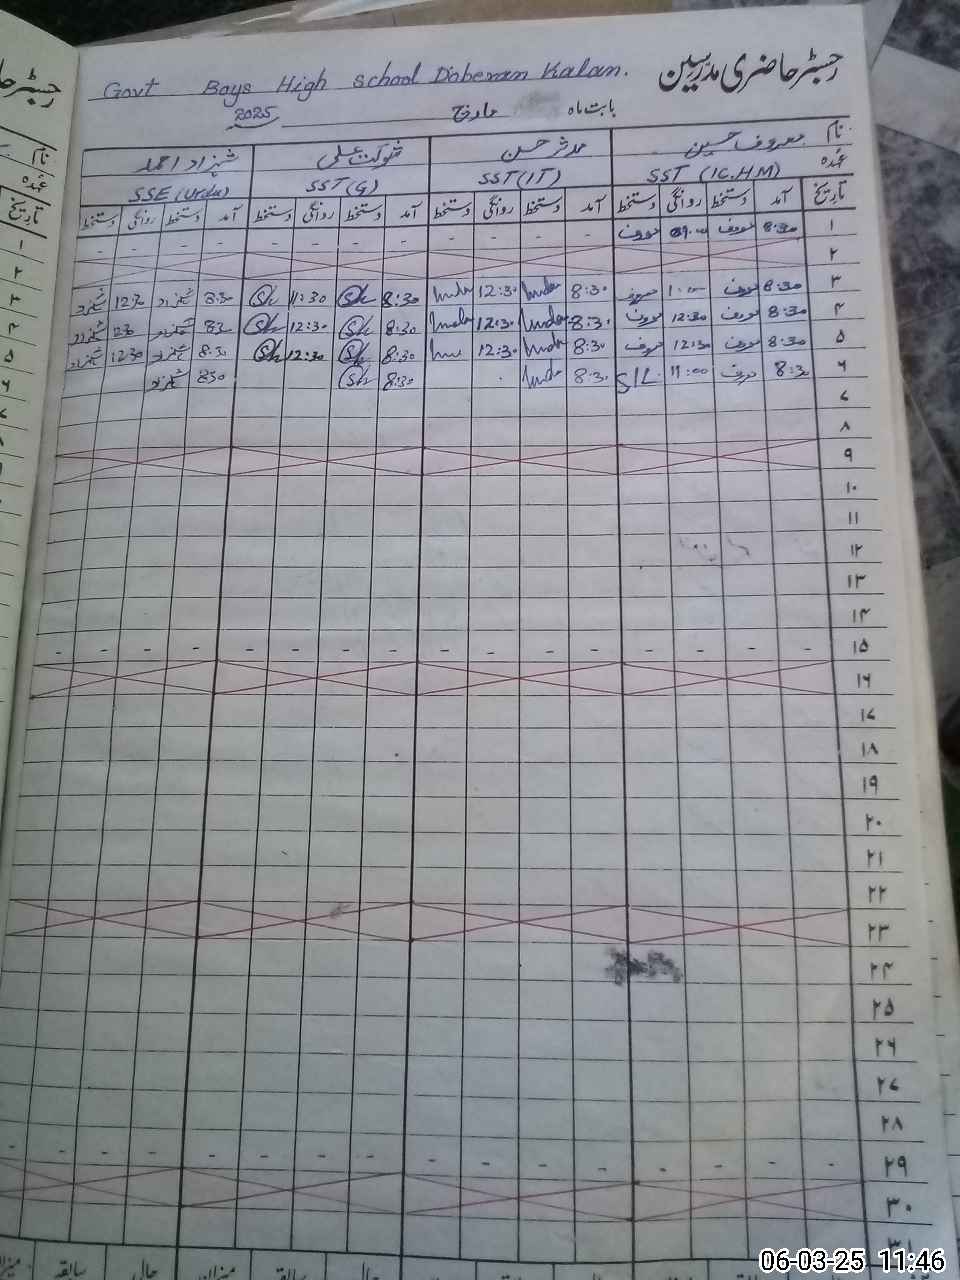 رجسٹر حاضری مدرسین
Govt Boys High School Doberan Kalan.
بابت ماہ مارچ 2025
نام معروف حسین مدثر حسن شوکت علی شہزاد احمد
عہدہ SST (IC.HM) SST(IT) SST(G) SSE (Urdu)
تاریخ آمد دستخط روانگی دستخط آمد دستخط روانگی دستخط آمد دستخط روانگی دستخط آمد دستخط روانگی دستخط
۱ 8:30 معروف معروف - - - - - - - - - - - -
۲
۳ 8:30 معروف معروف 8:30 12:30 8:30 Sh 11:30 Sh 8:30 شہزاد 12:30 شہزاد
۴ 8:30 معروف 12:30 معروف 8:30 12:30 8:30 Sh 12:30 Sh شہزاد شہزاد
۵ 8:30 معروف 12:30 معروف 8:30 12:30 8:30 Sh 12:30 Sh 8:30 شہزاد 12:30 شہزاد
۶ 8:30 معروف 11:00 S/L 8:30 8:30 Sh 8:30 شہزاد
۷
۸
۹
۱۰
۱۱
۱۲
۱۳
۱۴
۱۵ - - - - - - - - - - - - - - - -
۱۶
۱۷
۱۸
۱۹
۲۰
۲۱
۲۲
۲۳
۲۴
۲۵
۲۶
۲۷
۲۸
۲۹ - - - - - - - - - - - - - - - -
۳۰
۳۱
حال سابقہ میزان حال سابقہ میزان
06-03-25 11:46